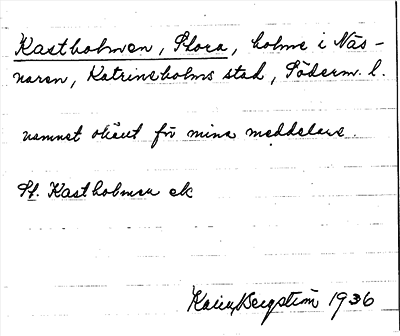 Kastholmen, Stora, holme i Näs-
naren, Katrineholms stad, Söderm. l.
namnet okänt för mina meddelare.
St. Kastholmen ek
Karin Bergström 1936